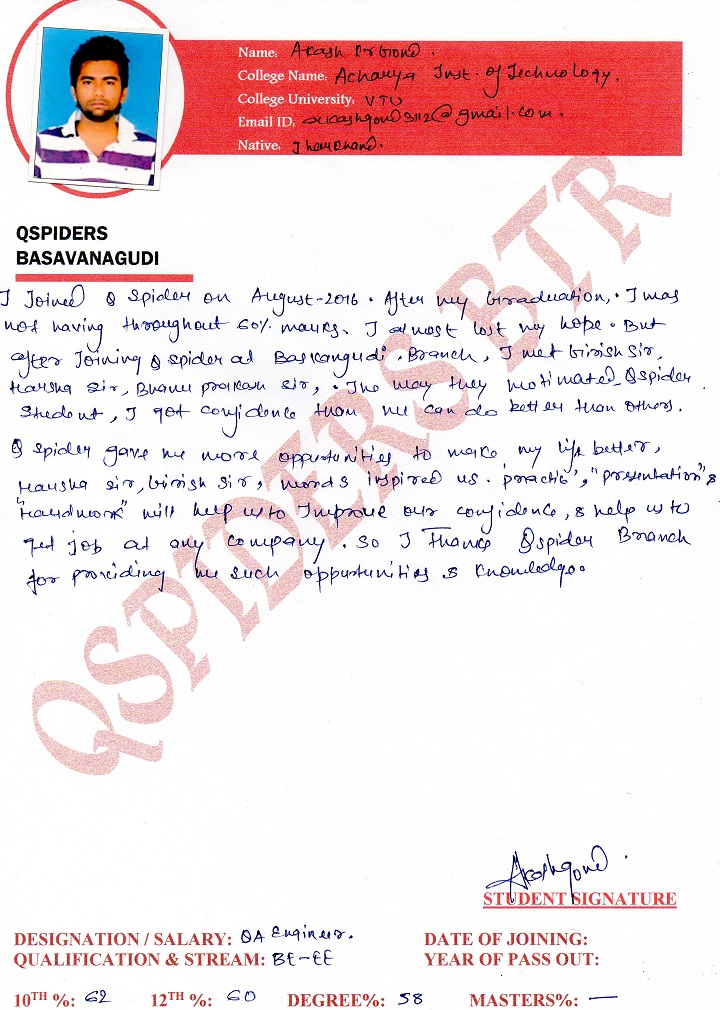 Name: Akash Kr Gond.
College Name: Acharya Inst. of Technology.
College University: VTU
Email ID: akashgond3112@gmail.com.
Native: Jharkhand.
QSPIDERS
BASAVANAGUDI
QSPIDERS BTR
I Joined Q Spider on August-2016. After my Graduation,. I was
not having throughout 60% marks. I almost lost my hope. But
after Joining Q spider at Basvangudi. Branch, I met Girish Sir,
Harsha Sir, Bhanu prakash Sir,. The way they motivated Qspider
Student, I got confidence than we can do better than others.
Q Spider gave me more oppertunities to make my life better,
Harsha Sir, Girish Sir, words inspired us. 'practis', "presentation" &
"Hardwork" will help us to Improve our confidence, & help us to
get job at any company. So I Thank Qspider Branch
for providing me such oppurtunities & Knowledge.
Akashgond.
STUDENT SIGNATURE
DESIGNATION / SALARY: QA Engineer. DATE OF JOINING:
QUALIFICATION & STREAM: BE-EE YEAR OF PASS OUT:
10TH %: 62 12TH %: 60 DEGREE%: 58 MASTERS%: —